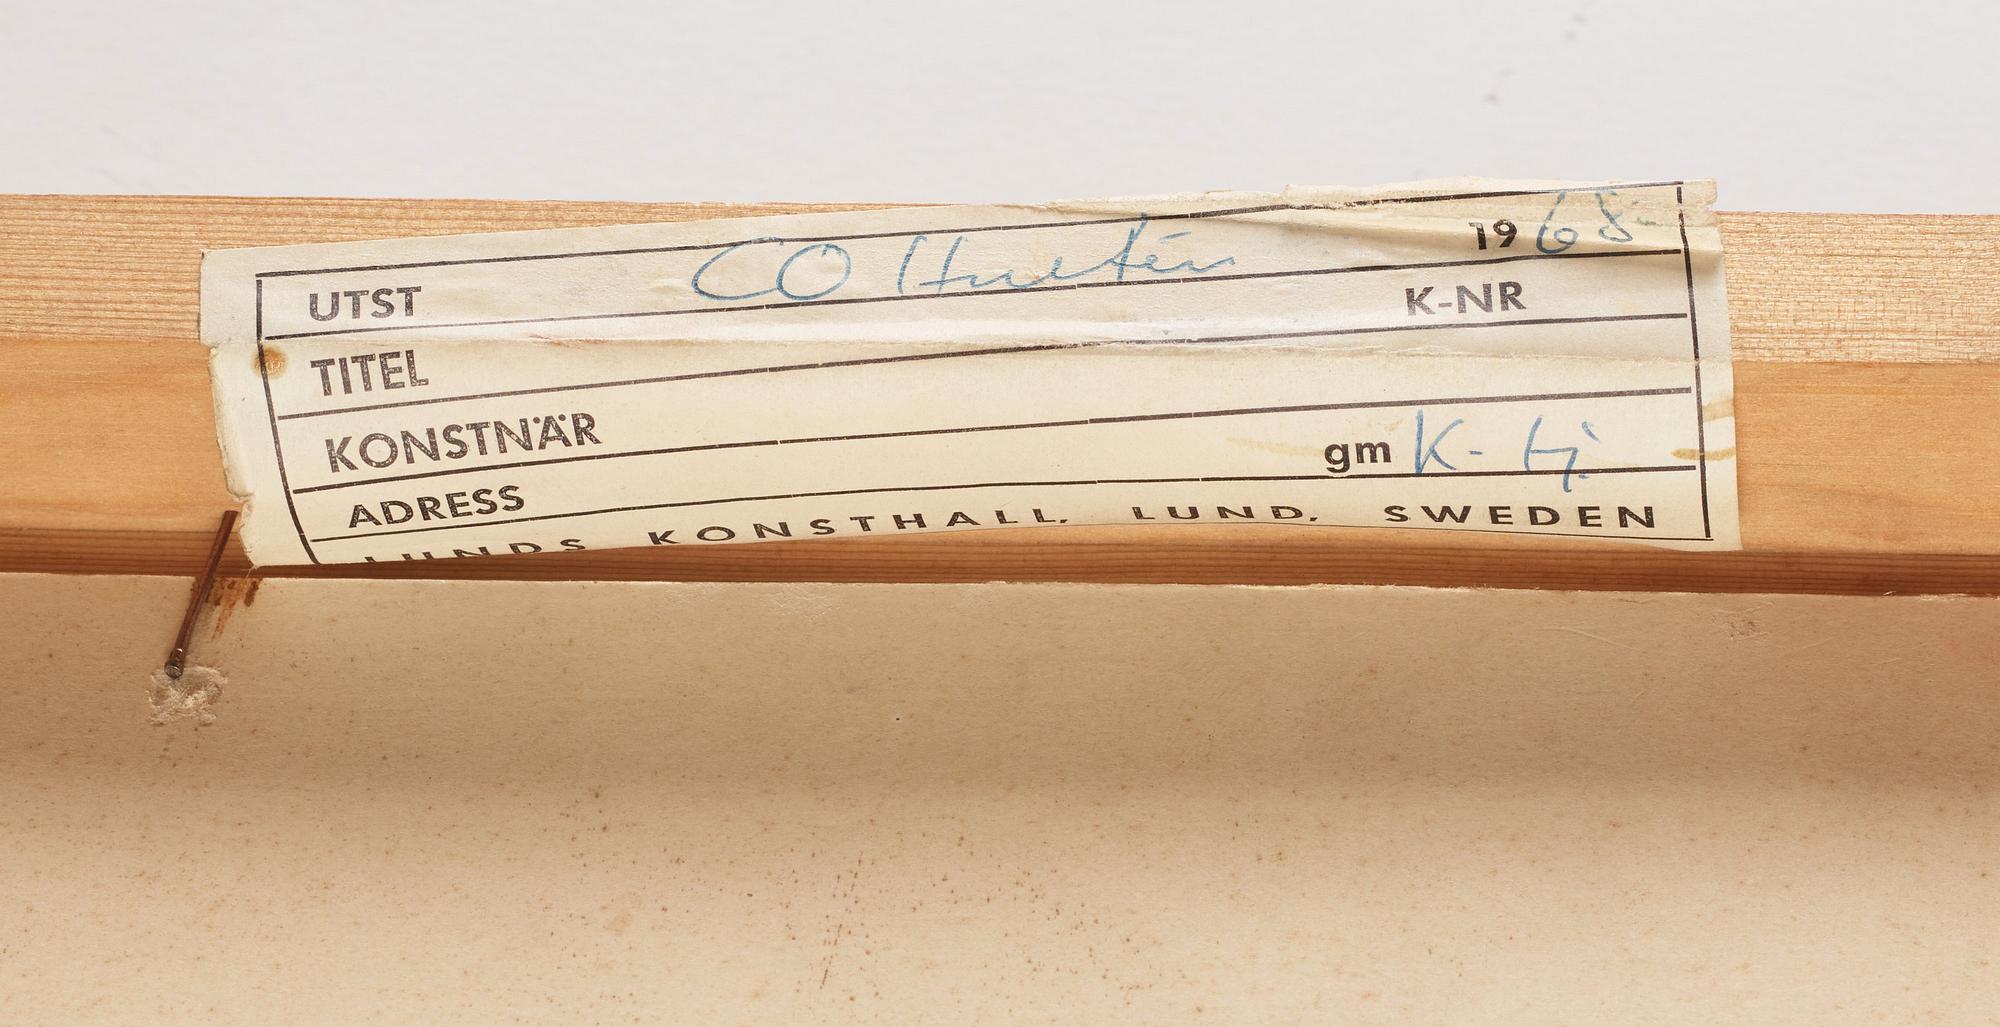 UTST CO Hultén 1968
TITEL K-NR
KONSTNÄR
ADRESS gm K-
LUNDS KONSTHALL, LUND, SWEDEN